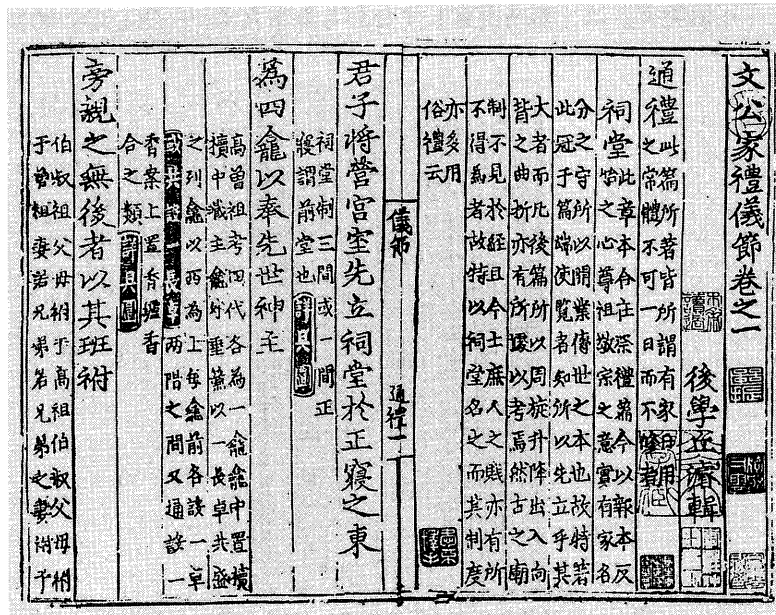 文公家禮儀節卷之一
後學丘濬輯
通禮
此篇所著皆所謂有家日用
之常體不可一日而不修者
祠堂
此章本合在祭禮篇今以報本反
始之心尊祖敬宗之意實有家名
分之守所以開業傳世之本也故特著
此冠于篇端使覧者知所以先立乎其
大者而凡後篇所以周旋升降出入向
皆之曲折亦有所據以考焉然古之廟
制不見於經且今士庶人之賤亦有所
不得為者故特以祠堂名之而其制度
亦多用
俗禮云
儀節
通禮一
君子將營宮室先立祠堂於正寢之東
祠堂制三間或一間正
寢謂前堂也
為四龕以奉先世神主
高曾祖考四代各為一龕龕中置櫝
櫝中藏主龕外垂簾以一長卓共盛
之列龕以西為上每龕前各設一卓
或共設一長卓兩階之間又通設一
香案上置香爐香
合之類詳具圖
旁親之無後者以其班祔
伯叔祖父母祔于高祖伯叔父母祔
于曾祖妻若兄弟若兄弟之妻祔于